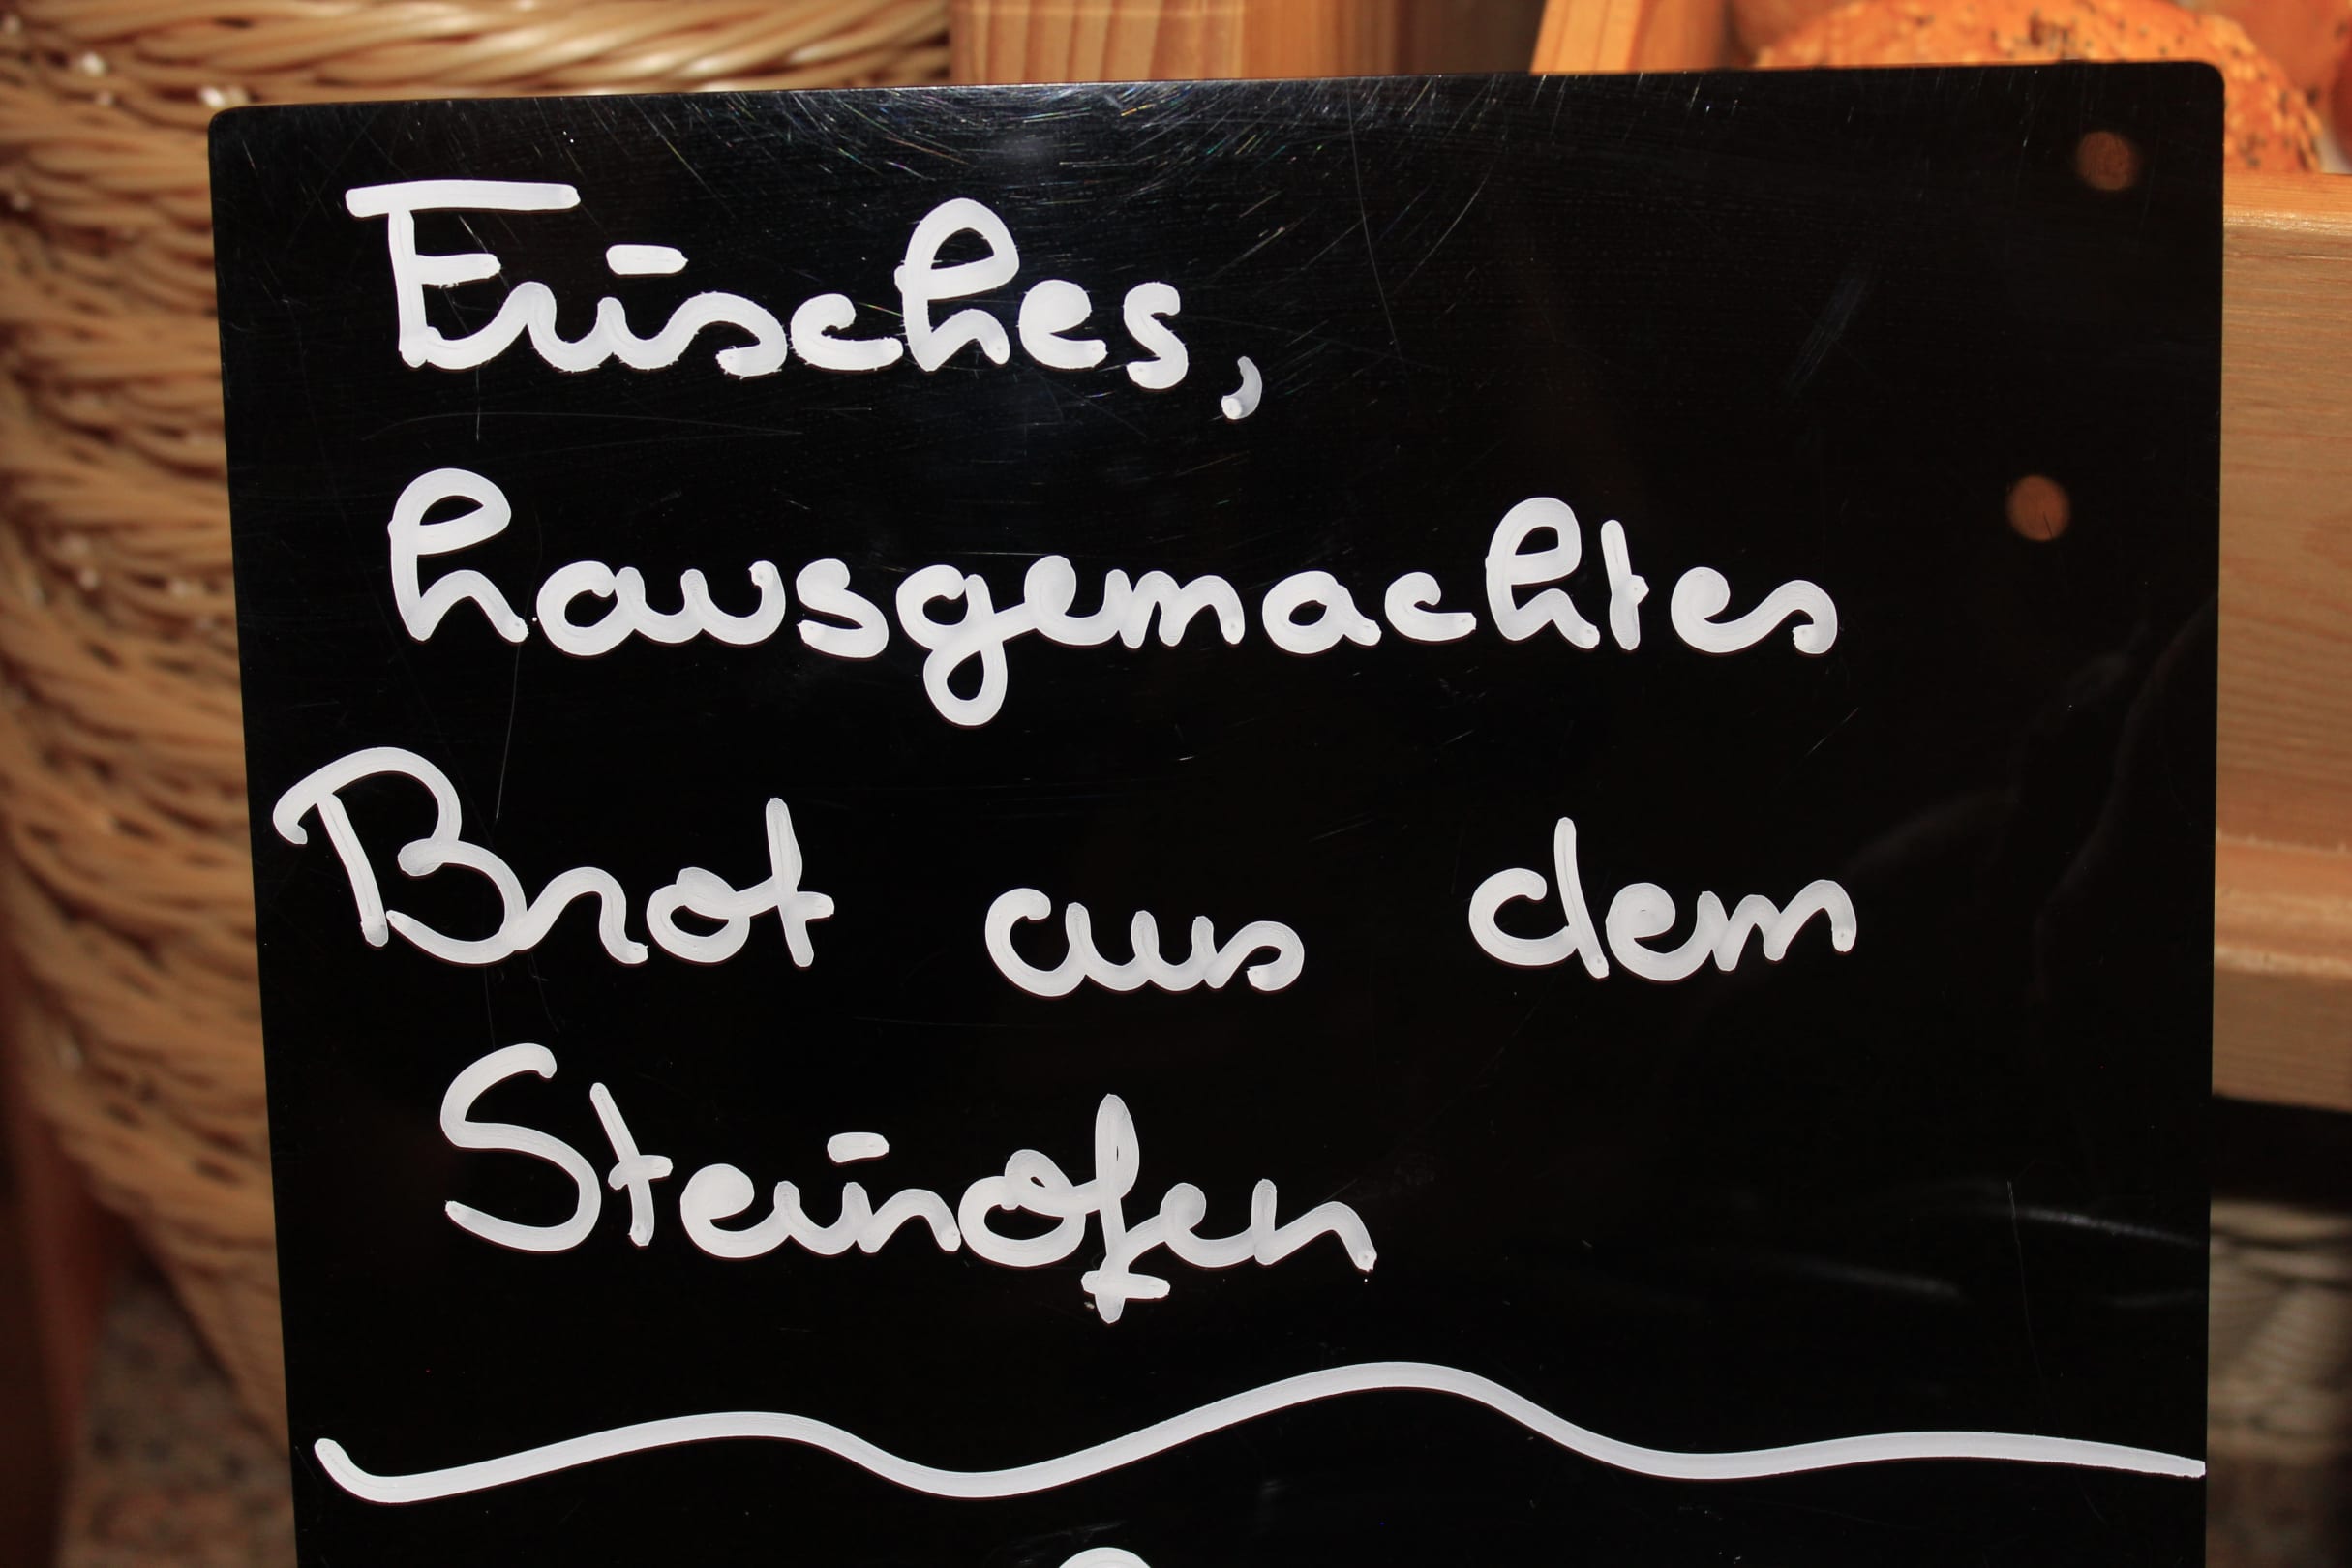 Frisches,
hausgemachtes
Brot aus dem
Steinofen